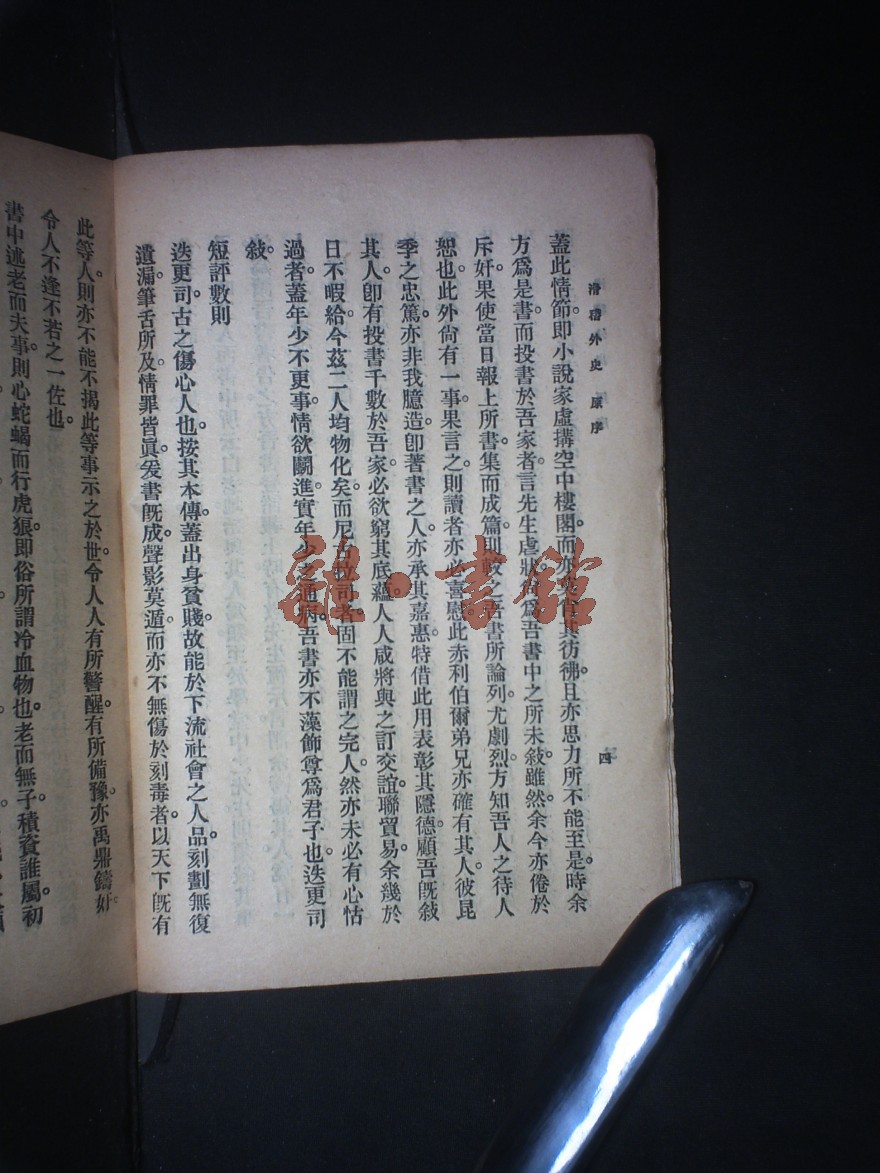 滑稽外史 原序
四
蓋此情節即小說家虛搆空中樓閣。而亦其彷彿。且亦思力所不能至。是時余
方爲是書。而投書於吾家者。言先生虐狀。尙爲吾書中之所未敍。雖然。余今亦倦於
斥奸。果使當日報上所書。集而成篇。則較之吾書所論列。尤劇烈。方知吾人之待人
恕也。此外尙有一事。果言之。則讀者亦必喜慰。此赤利伯爾弟兄。亦確有其人。彼昆
季之忠篤。亦非我臆造。卽著書之人。亦承其嘉惠。特借此用表彰其隱德。顧吾旣敍
其人。卽有投書千數於吾家。必欲窮其底蘊。人人咸將與之訂交誼。聯貿易。余幾於
日不暇給。今茲二人均物化矣。而尼古拉司者。固不能謂之完人。然亦未必有心怙
過者。蓋年少不更事。情欲鬭進。實年少之通病。吾書亦不藻飾尊爲君子也。迭更司
敍。
短評數則
迭更司古之傷心人也。按其本傳。蓋出身貧賤。故能於下流社會之人品。刻劃無復
遺漏。筆舌所及。情罪皆眞。爰書旣成。聲影莫遁。而亦不無傷於刻毒者。以天下旣有
此等人。則亦不能不揭此等事示之於世。令人人有所警醒。有所備豫。亦禹鼎鑄奸。
令人不逢不若之一佐也。
書中述老而夫事。則心蛇蝎而行虎狼。即俗所謂冷血物也。老而無子。積資誰屬。初
龍·書館